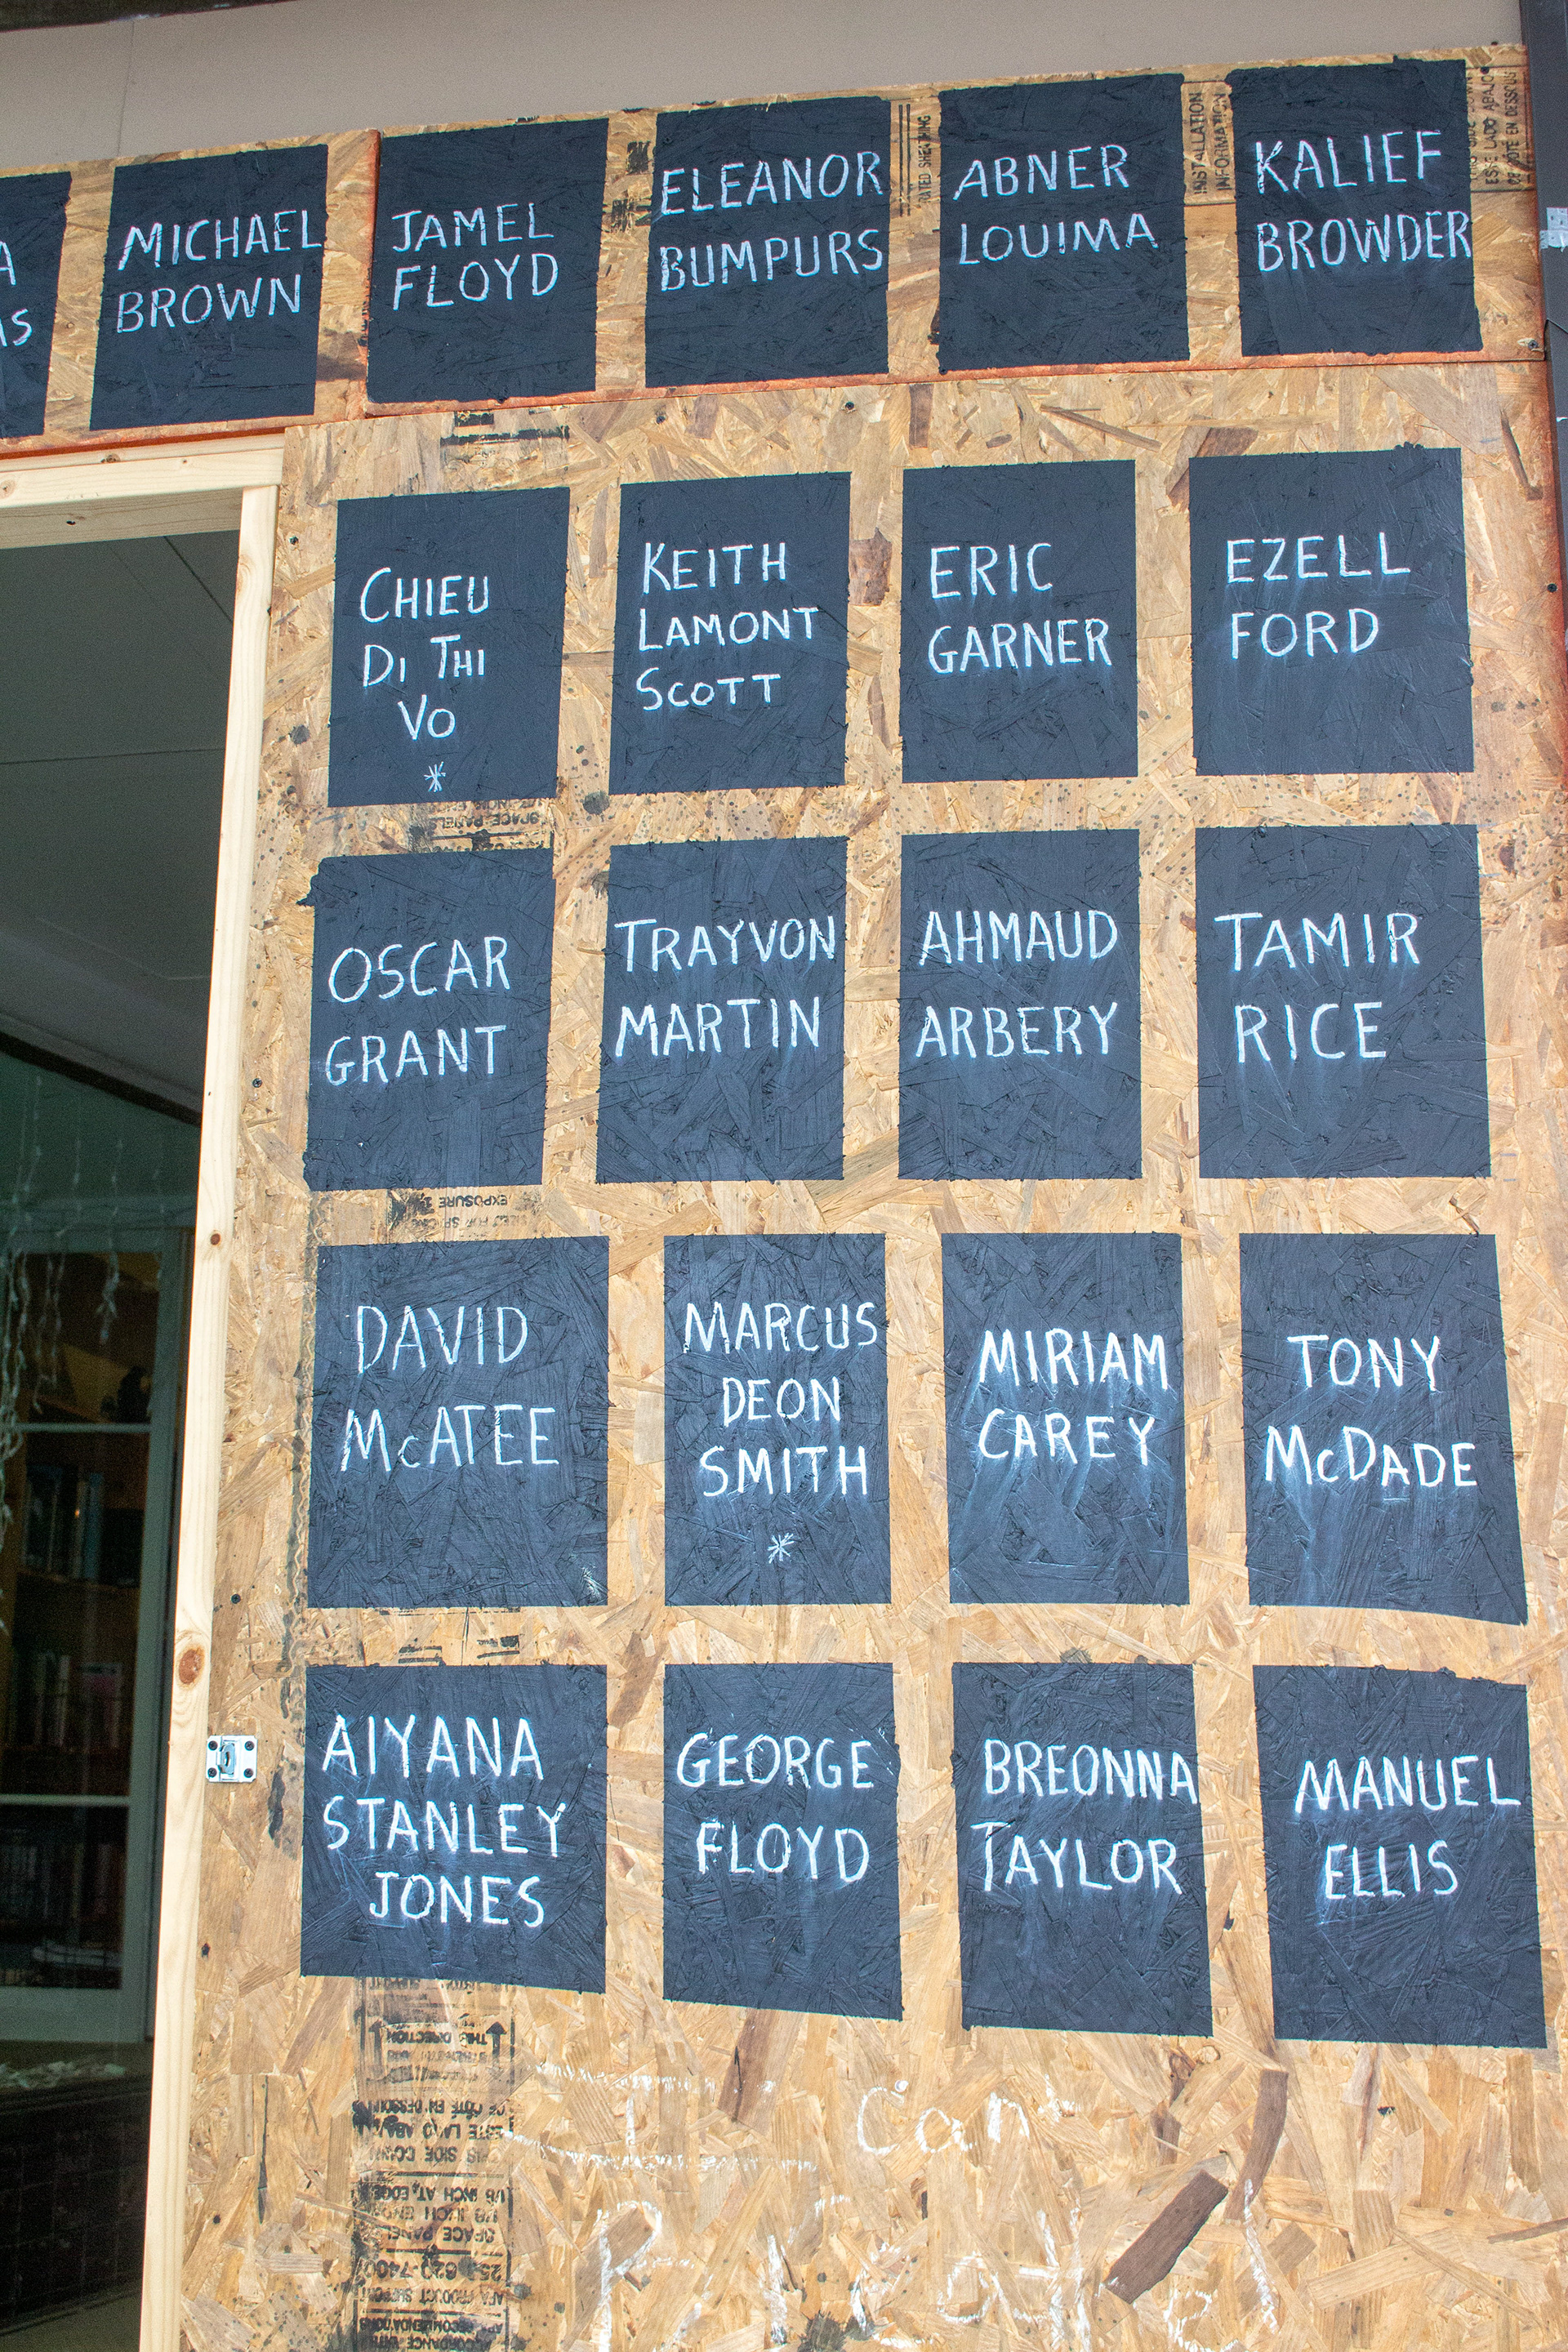 MICHAEL
BROWN
JAMEL
FLOYD
ELEANOR
BUMPURS
ABNER
LOUIMA
KALIEF
BROWDER
INSTALLATION
INFORMATION
CHIEU
DI THI
VO
*
KEITH
LAMONT
SCOTT
ERIC
GARNER
EZELL
FORD
SPACE PANELS
OSCAR
GRANT
TRAYVON
MARTIN
AHMAUD
ARBERY
TAMIR
RICE
EXPOSURE 1
DAVID
McATEE
MARCUS
DEON
SMITH
*
MIRIAM
CAREY
TONY
McDADE
AIYANA
STANLEY
JONES
GEORGE
FLOYD
BREONNA
TAYLOR
MANUEL
ELLIS
THIS DIRECTION
I Can